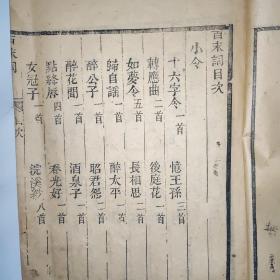 百末詞目次
小令
十六字令一首　憶王孫三首
轉應曲二首　後庭花一首
如夢令五首　長相思一首
歸自謠一首　醉太平一首
醉公子一首　昭君怨一首
醉花間一首　酒泉子一首
點絳唇四首　春光好一首
女冠子一首　浣溪紗八首
百末詞　目次